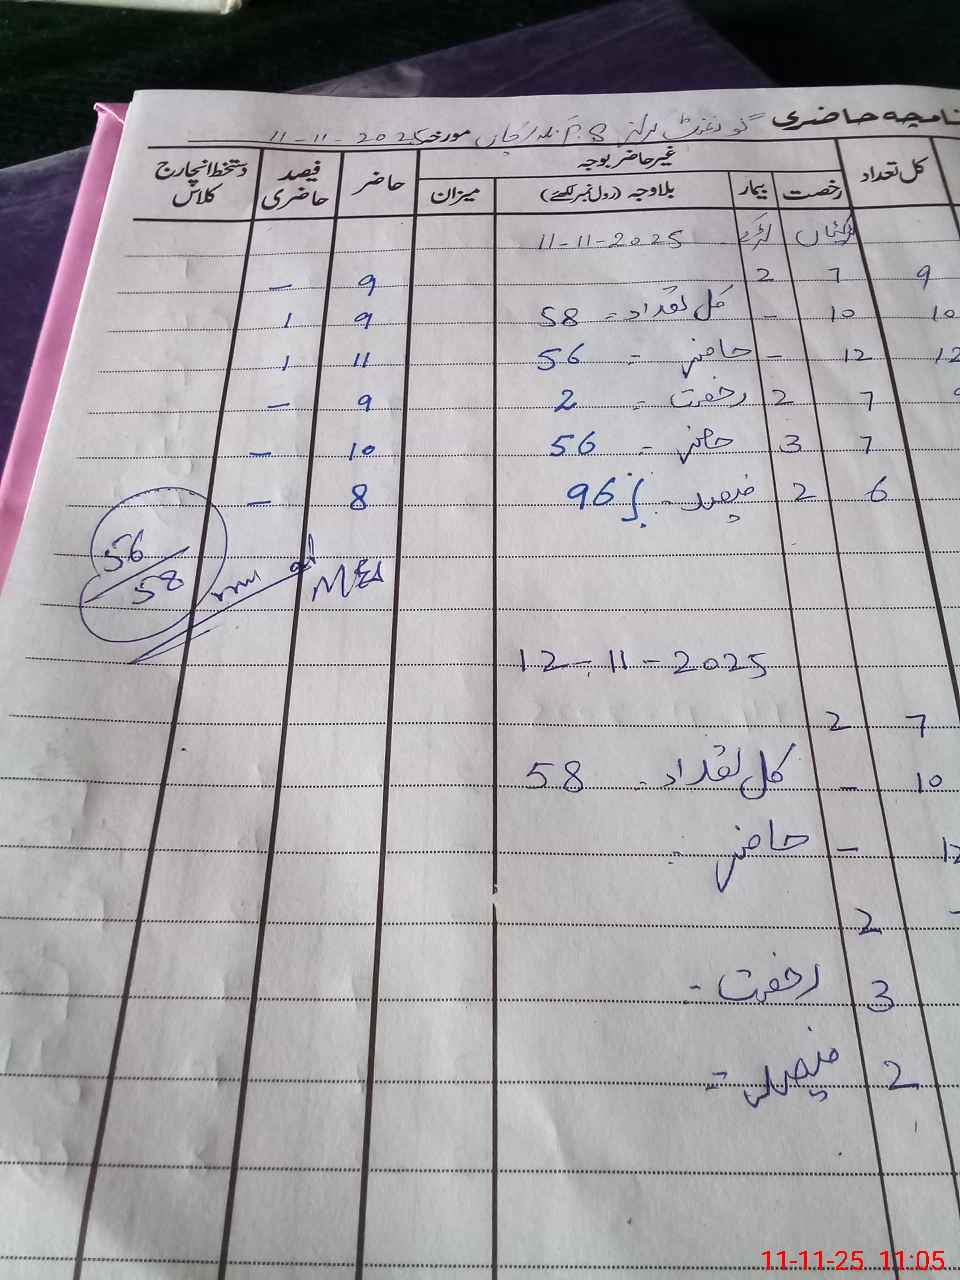 حاضری گورنمنٹ گرلز P.S مورخہ 11-11-2025
کل تعداد غیر حاضر بوجہ حاضر فیصد حاضری دستخط انچارج کلاس
رخصت بیمار بلاوجہ (رول نمبر لکھئے) میزان
لڑکیاں لڑکے 11-11-2025
9 7 2 9 -
10 10 - کل تعداد = 58 9 1
12 12 - حاضر = 56 11 1
9 7 2 رخصت = 2 9 -
7 3 حاضر = 56 10 -
6 2 فیصد = 96٪ 8 -
56
58
MEA
12-11-2025
7 2
10 - کل تعداد = 58
12 - حاضر =
2
3 رخصت =
2 فیصد =
11-11-25 11:05